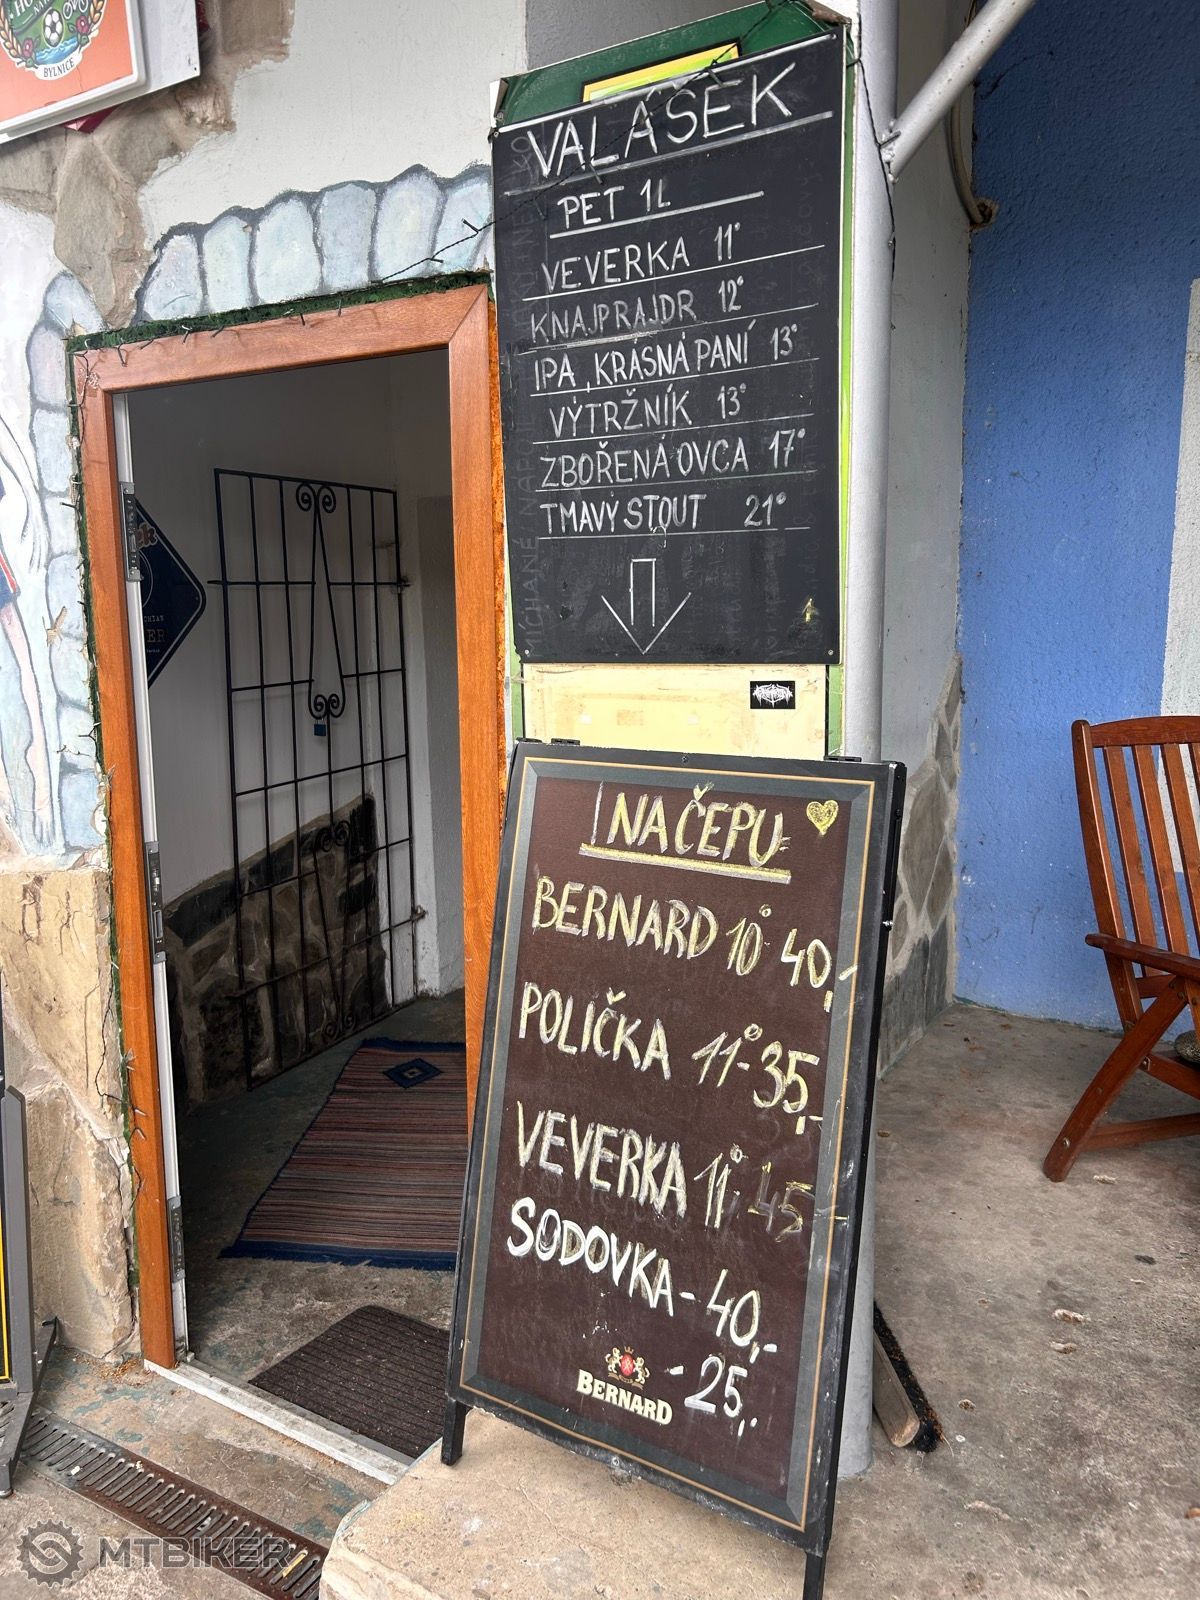 BYLNICE
VALÁŠEK
PET 1L
VEVERKA 11°
KNAJPRAJDR 12°
IPA, KRÁSNÁ PANÍ 13°
VÝTRŽNÍK 13°
ZBOŘENÁ OVCA 17°
TMAVÝ STOUT 21°
NA ČEPU
BERNARD 10° 40,-
POLIČKA 11° - 35,-
VEVERKA 11° - 45-
SODOVKA - 40,-
- 25,-
BERNARD
MTBIKER